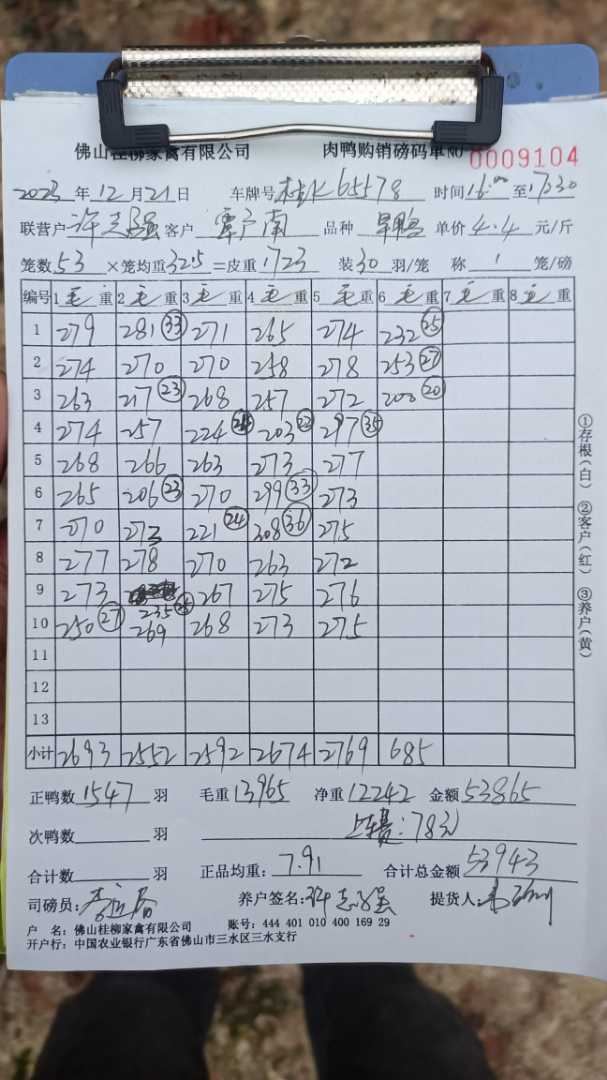 佛山桂柳家禽有限公司 肉鸭购销磅码单 NO 0009104
2023年12月21日 车牌号 桂K65578 时间16:00至17:30
联营户 许志强 客户 覃户南 品种 旱鸭 单价4.4元/斤
笼数53×笼均重32.5=皮重1723 装30羽/笼 称1笼/磅
编号 1毛重 2毛重 3毛重 4毛重 5毛重 6毛重 7毛重 8毛重
1 279 281 33 271 265 274 232 25
2 274 270 270 258 278 253 27
3 263 217 23 268 257 272 200 20
4 274 257 224 203 22 297 35
5 268 266 263 273 277
6 265 206 23 270 299 33 273
7 270 273 221 24 308 36 275
8 277 278 270 263 272
9 273 235 267 275 276
10 250 27 269 268 273 275
11
12
13
小计 2693 2552 2592 2674 2769 685
正鸭数1547羽 毛重13965 净重12242 金额53865
次鸭数 羽 78元
合计数 羽 正品均重:7.91 合计总金额53943
司磅员: 养户签名: 许志强 提货人:
户 名:佛山桂柳家禽有限公司 账号:444 401 010 400 169 29
开户行:中国农业银行广东省佛山市三水区三水支行
①存根(白) ②客户(红) ③养户(黄)